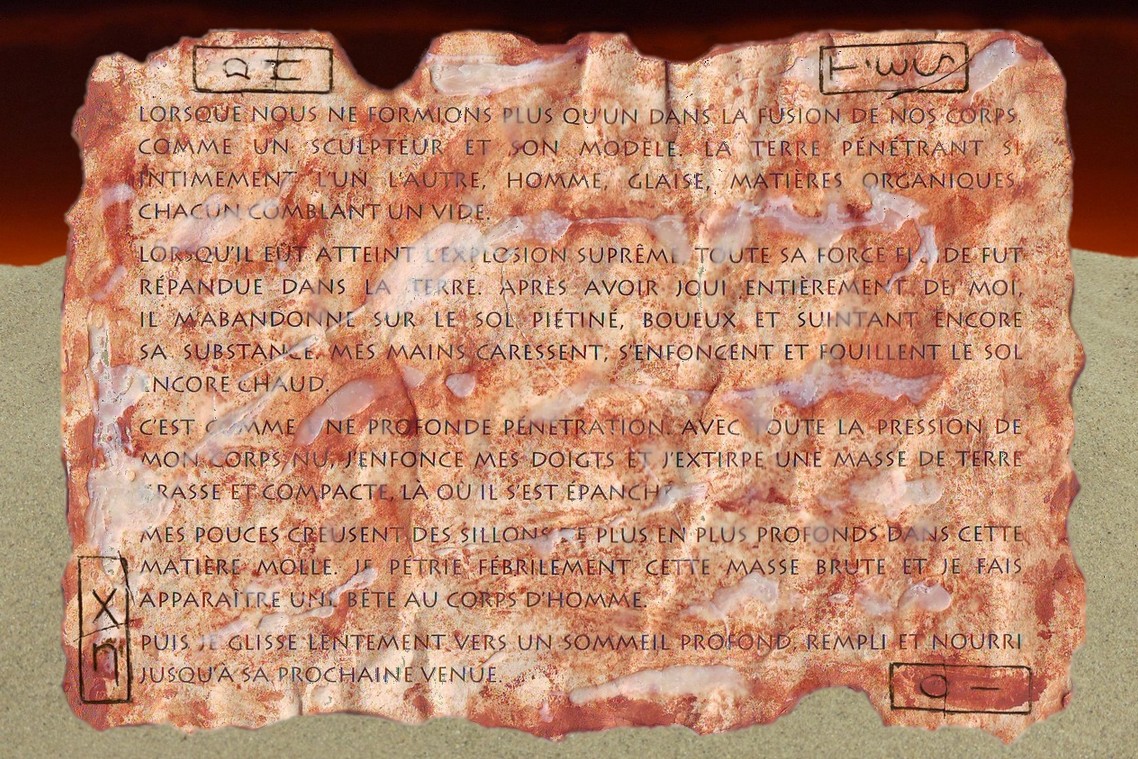 LORSQUE NOUS NE FORMIONS PLUS QU'UN DANS LA FUSION DE NOS CORPS,
COMME UN SCULPTEUR ET SON MODÈLE. LA TERRE PÉNÉTRANT SI
INTIMEMENT L'UN L'AUTRE, HOMME, GLAISE, MATIÈRES ORGANIQUES
CHACUN COMBLANT UN VIDE.
LORSQU'IL EÛT ATTEINT L'EXPLOSION SUPRÊME, TOUTE SA FORCE FLUIDE FUT
RÉPANDUE DANS LA TERRE. APRÈS AVOIR JOUI ENTIÈREMENT DE MOI,
IL M'ABANDONNE SUR LE SOL PIÉTINÉ, BOUEUX ET SUINTANT ENCORE
SA SUBSTANCE. MES MAINS CARESSENT, S'ENFONCENT ET FOUILLENT LE SOL
ENCORE CHAUD.
C'EST COMME UNE PROFONDE PÉNÉTRATION. AVEC TOUTE LA PRESSION DE
MON CORPS NU, J'ENFONCE MES DOIGTS ET J'EXTIRPE UNE MASSE DE TERRE
GRASSE ET COMPACTE, LÀ OÙ IL S'EST ÉPANCHÉ.
MES POUCES CREUSENT DES SILLONS DE PLUS EN PLUS PROFONDS DANS CETTE
MATIÈRE MOLLE. JE PÉTRIE FÉBRILEMENT CETTE MASSE BRUTE ET JE FAIS
APPARAÎTRE UNE BÊTE AU CORPS D'HOMME.
PUIS JE GLISSE LENTEMENT VERS UN SOMMEIL PROFOND, REMPLI ET NOURRI
JUSQU'À SA PROCHAINE VENUE.